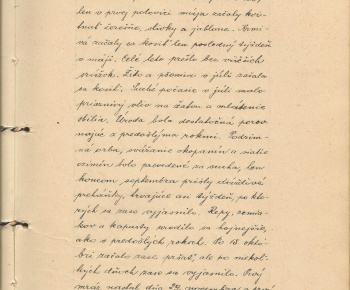 len v prvej polovici mája začaly kvi-
tnúť čerešne, slivky a jablone. Krmi-
vá začaly sa kosiť len posledný týždeň
v máji. Celé leto prešlo bez väčších
srážok. Žito a pšenica v júli začala
sa kosiť. Suché počasie v júli malo
priaznivý vliv na žatvu a mlátenie
obilia. Úroda bola dostatočná porov-
najúc s predošlými rokmi. Podzim-
ná orba, sväžanie okopanín a siatie
ozimín bolo prevedené za sucha, len
koncom septembra prišly dážďlivé
prehánky, trvajúce asi týždeň, po kto-
rých sa zase vyjasnilo. Repy, zemia-
kov a kapusty urodilo sa hojnejšie,
ako v predošlých rokoch. Po 15. októ-
bri začalo zase pršať, ale po nieko-
ľkých dňoch zase sa vyjasnilo. Prvý
mráz nastal dňa 24. novembra a prvý